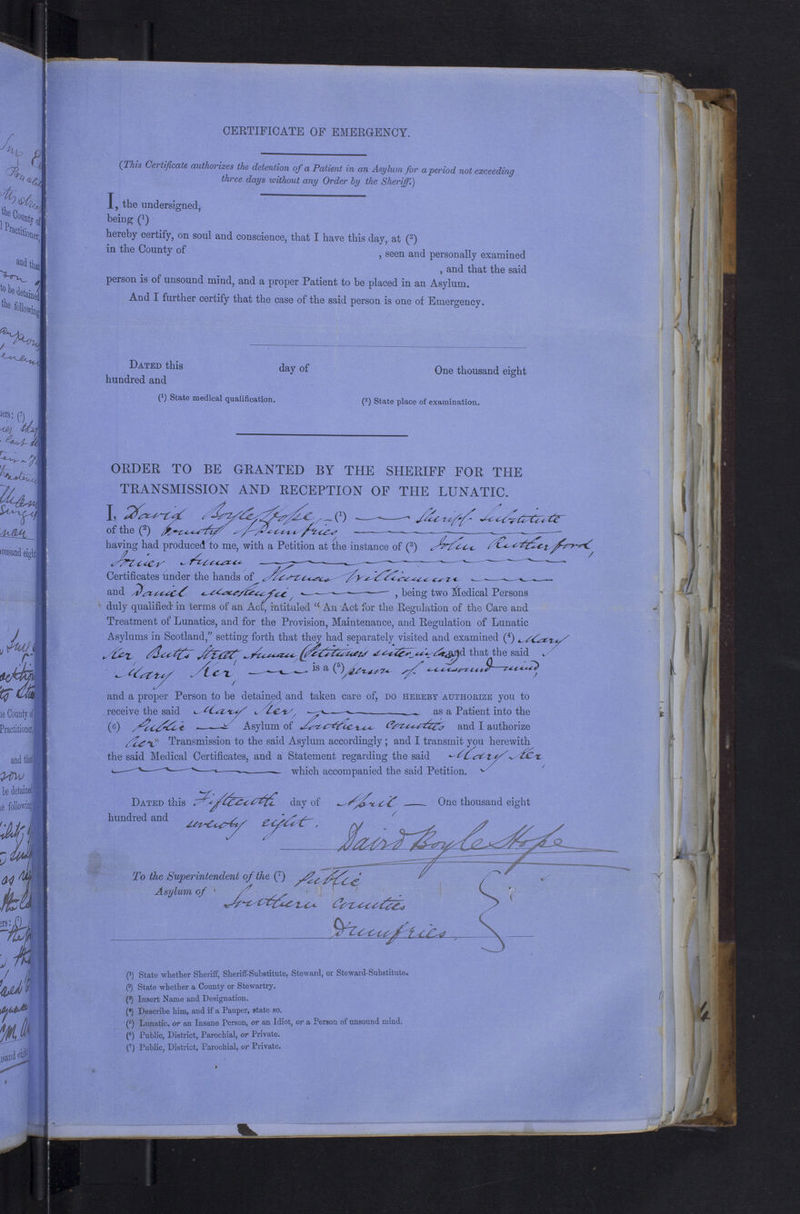 CERTIFICATE OF EMERGENCY.
(This Certificate authorizes the detention of a Patient in an Asylum for a period not exceeding
three days without any Order by the Sheriff.)
I, the undersigned,
being (1)
hereby certify, on soul and conscience, that I have this day, at (2)
in the County of , seen and personally examined
, and that the said
person is of unsound mind, and a proper Patient to be placed in an Asylum.
And I further certify that the case of the said person is one of Emergency.
DATED this day of One thousand eight
hundred and
(1) State medical qualification. (2) State place of examination.
ORDER TO BE GRANTED BY THE SHERIFF FOR THE
TRANSMISSION AND RECEPTION OF THE LUNATIC.
I, David Boyle Hope, (1) Sheriff Substitute
of the (2) County of Dumfries
having had produced to me, with a Petition at the instance of (3) John Rutherford,
Annan
Certificates under the hands of Thomas Williamson
and Daniel , being two Medical Persons
duly qualified in terms of an Act, intituled "An Act for the Regulation of the Care and
Treatment of Lunatics, and for the Provision, Maintenance, and Regulation of Lunatic
Asylums in Scotland," setting forth that they had separately visited and examined (4) Mary
Ker Butts Street, Annan (Petitioners sister in law) and that the said
Mary Ker, is a (5) person of unsound mind
and a proper Person to be detained and taken care of, DO HEREBY AUTHORIZE you to
receive the said Mary Ker, as a Patient into the
(6) Public Asylum of Southern Counties and I authorize
her Transmission to the said Asylum accordingly; and I transmit you herewith
the said Medical Certificates, and a Statement regarding the said Mary Ker
which accompanied the said Petition.
DATED this Fifteenth day of April One thousand eight
hundred and seventy eight.
David Boyle Hope
To the Superintendent of the (7) Public
Asylum of Southern Counties
Dumfries.
(1) State whether Sheriff, Sheriff-Substitute, Steward, or Steward-Substitute.
(2) State whether a County or Stewartry.
(3) Insert Name and Designation.
(4) Describe him, and if a Pauper, state so.
(5) Lunatic, or an Insane Person, or an Idiot, or a Person of unsound mind.
(6) Public, District, Parochial, or Private.
(7) Public, District, Parochial, or Private.